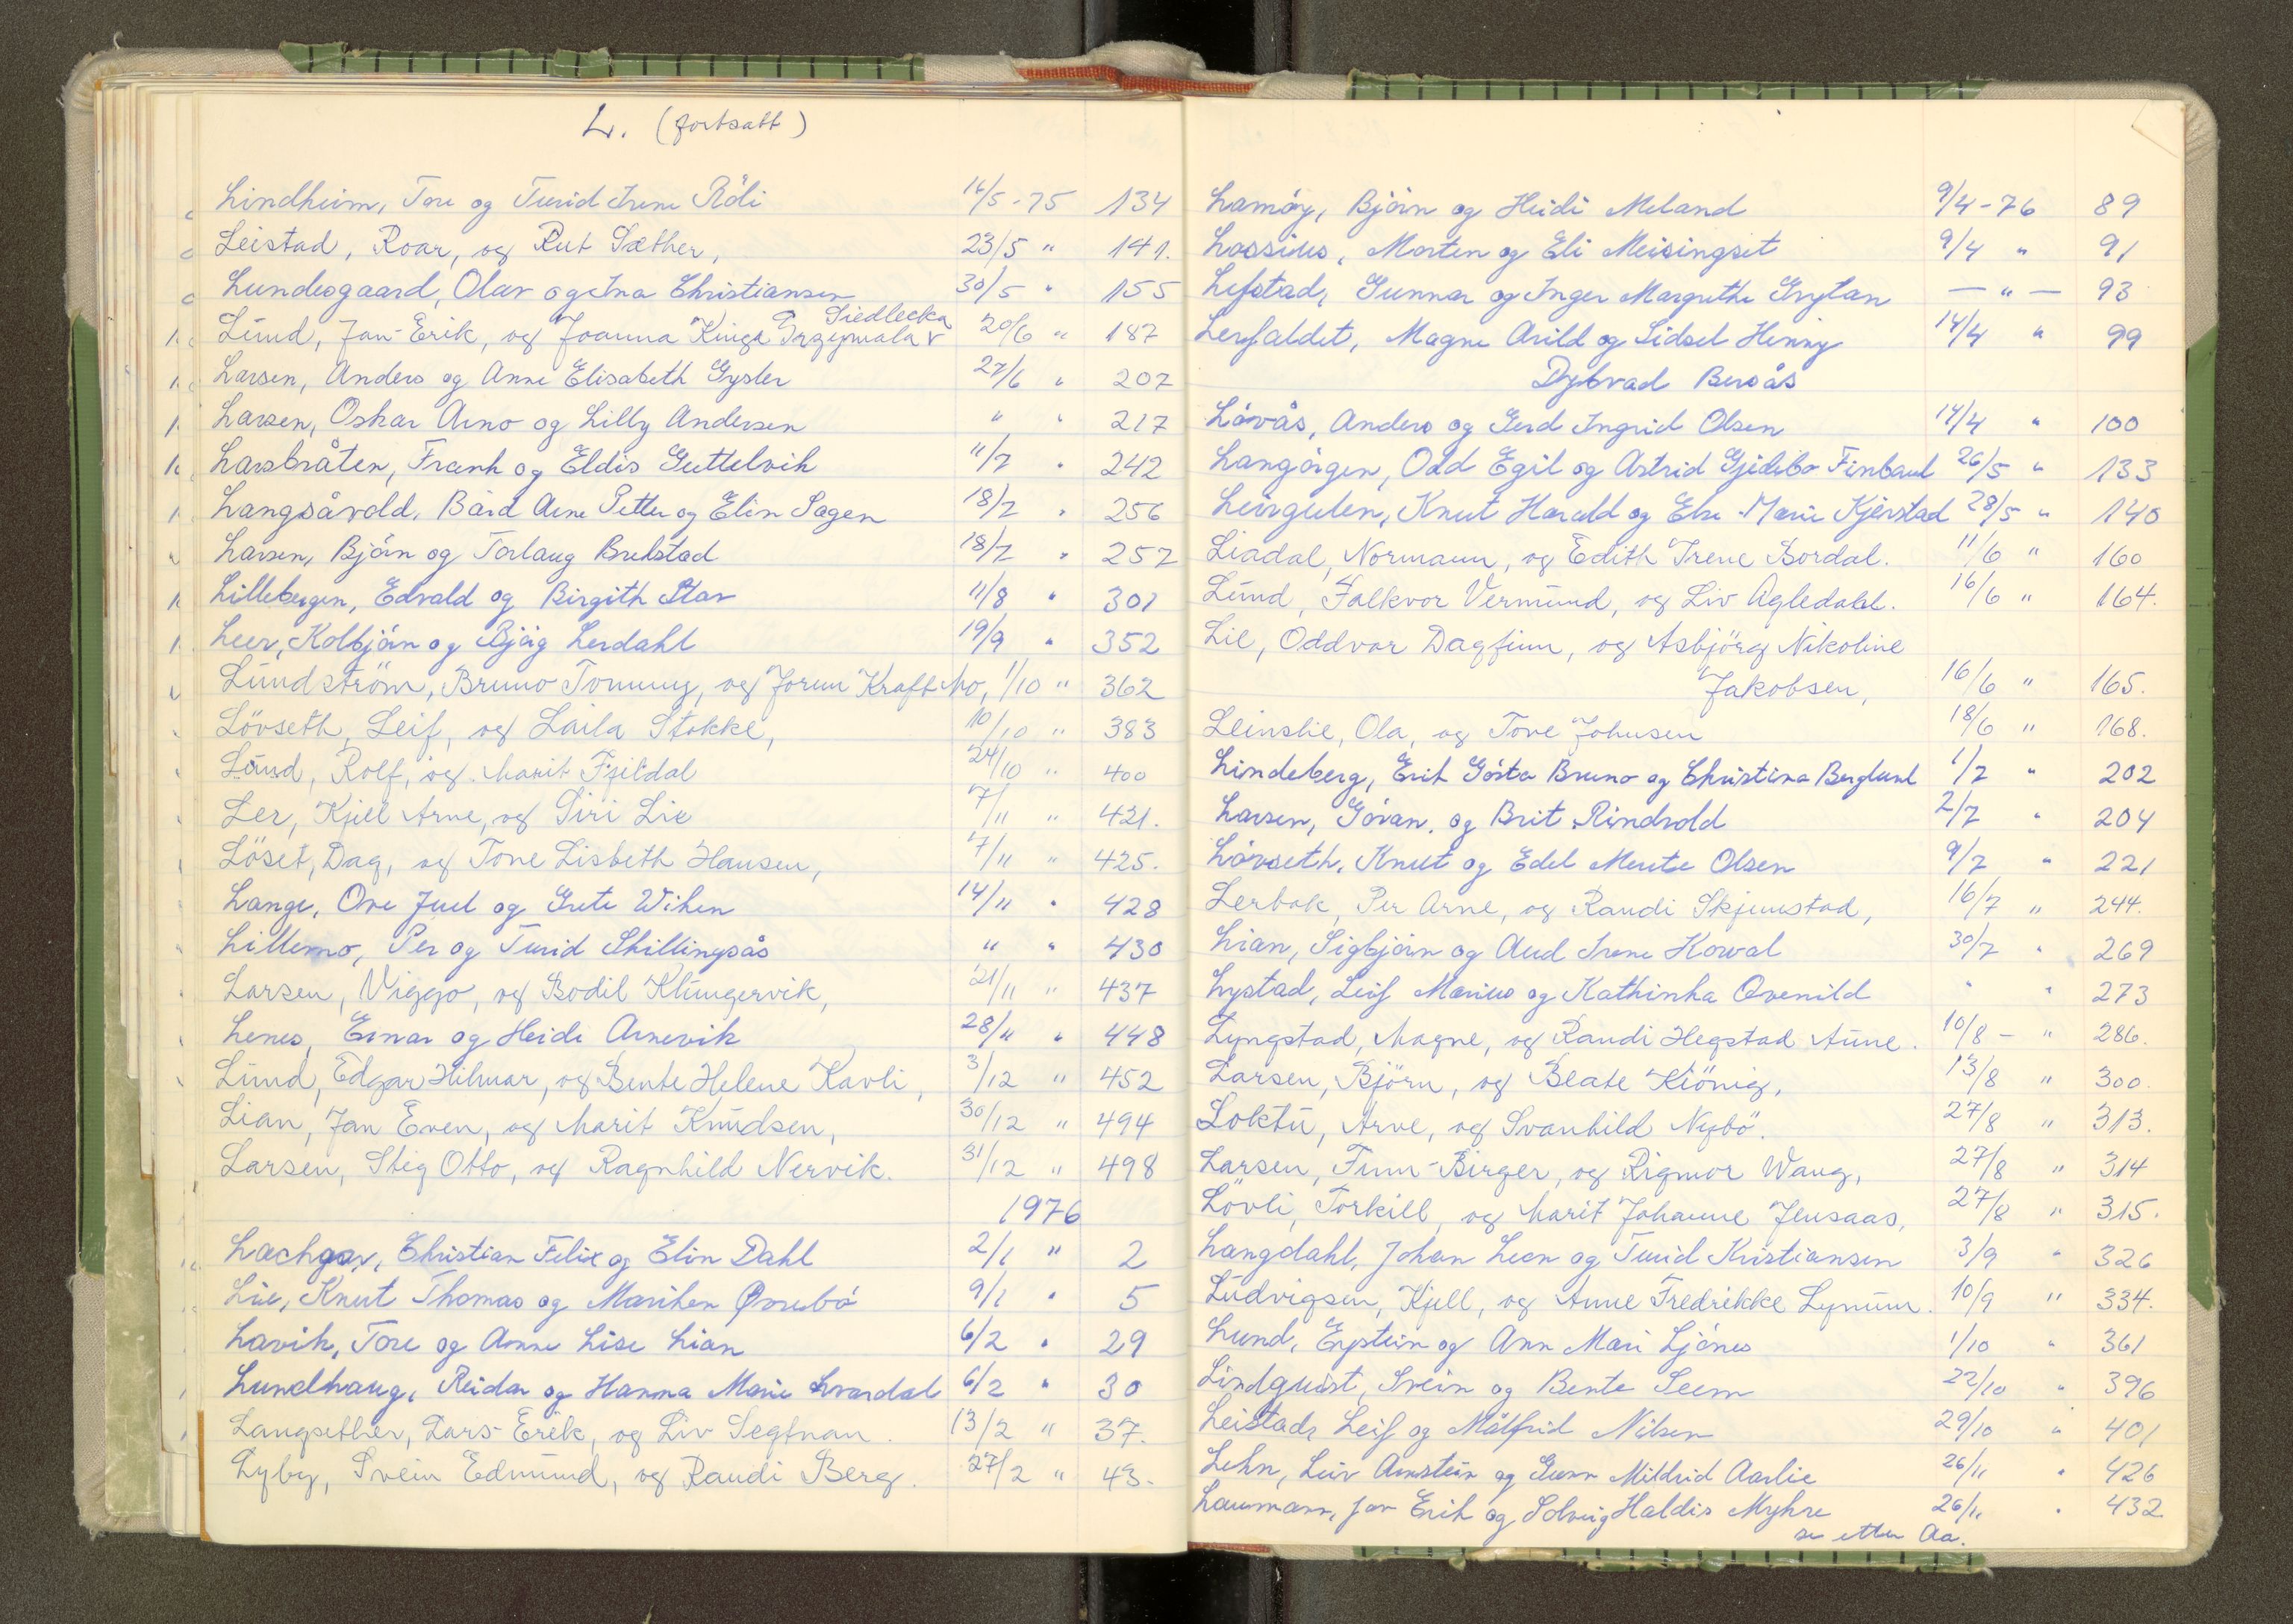 L. (fortsatt)
Lindheim, Tore og Turid Irene Röli 16/5-75 134
Leistad, Roar, og Rut Sæther, 23/5 " 141.
Lundesgaard, Olav og Ina Christiansen 30/5 " 155
Siedlecka
Lund, Jan-Erik, og Joanna Kinga Grzymala v 20/6 " 187
Larsen, Anders og Anne Elisabeth Gysler 27/6 " 207
Larsen, Oskar Arno og Lilly Andersen " " 217
Larsbråten, Frank og Eldis Guttelvik 11/7 " 242
Langsåvold, Bård Arne Petter og Elin Sagen 18/7 " 256
Larsen, Bjørn og Torlaug Brekstad 18/7 " 257
Lillebergen, Edvald og Birgith Stav 11/8 " 301
Leer, Kolbjørn og Bjørg Lerdahl 19/9 " 352
Lundström, Bruno Tommy, og Jorun Kraft Mo, 1/10 " 362
Lövseth, Leif, og Laila Stokke, 10/10 " 383
Lund, Rolf, og Marit Fjeldal 24/10 " 400
Ler, Kjell Arne, og Siri Lie 7/11 " 421.
Löset, Dag, og Tone Lisbeth Hansen, 7/11 " 425.
Lange, Ove Juel og Grete Wiken 14/11 " 428
Lillemo, Per og Turid Skillingsås " " 430
Larsen, Viggo, og Bodil Klungervik, 21/11 " 437
Lenes, Einar og Heidi Arnevik 28/11 " 448
Lund, Edgar Hilmar, og Bente Helene Kavli, 3/12 " 452
Lian, Jan Even, og Marit Knudsen, 30/12 " 494
Larsen, Stig Otto, og Ragnhild Nervik. 31/12 " 498
1976
Lachgar, Christian Felix og Elin Dahl 2/1 " 2
Lie, Knut Thomas og Mariken Øvrebø 9/1 " 5
Lavik, Tore og Anne Lise Lian 6/2 " 29
Lundhaug, Reidar og Hanna Marie Svardal 6/2 " 30
Langsether, Lars-Erik, og Liv Segtnan. 13/2 " 37.
Lyby, Svein Edmund, og Randi Berg. 27/2 " 43.
Lamøy, Bjørn og Heidi Meland 9/4-76 89
Lossius, Morten og Eli Meisingset 9/4 " 91
Lefstad, Gunnar og Inger Margrethe Grytan — " — 93
Lerfaldet, Magne Arild og Sidsel Henny 14/4 " 99
Dybvad Bersås
Løvås, Anders og Gerd Ingrid Olsen 14/4 " 100
Langørgen, Odd Egil og Astrid Gjidebo Finbaul 26/5 " 133
Leirgulen, Knut Harald og Else Marie Kjerstad 28/5 " 140
Liadal, Normann, og Edith Irene Bordal. 11/6 " 160
Lund, Falkvor Vermund, og Liv Agledahl. 16/6 " 164.
Lie, Oddvar Dagfinn, og Asbjörg Nikoline
Jakobsen, 16/6 " 165.
Leinslie, Ola, og Tove Johnsen 18/6 " 168.
Lindeberg, Erik Gösta Bruno og Christina Berglund 1/7 " 202
Larsen, Gøran, og Brit Rindvold 2/7 " 204
Løvseth, Knut og Edel Merete Olsen 9/7 " 221
Lerbak, Per Arne, og Randi Skjemstad, 16/7 " 244.
Lian, Sigbjørn og Aud Irene Horval 30/7 " 269
Lystad, Leif Marius og Kathinka Ovenild " " 273
Lyngstad, Magne, og Randi Hegstad Aune. 10/8 - " 286.
Larsen, Björn, og Beate Kiönig, 13/8 " 300.
Loktu, Arve, og Svanhild Nybö. 27/8 " 313.
Larsen, Finn-Birger, og Rigmor Waug, 27/8 " 314
Lövli, Torkill, og Marit Johanne Jensaas, 27/8 " 315.
Langdahl, Johan Leon og Turid Kristiansen 3/9 " 326
Ludvigsen, Kjell, og Anne Fredrikke Lynum. 10/9 " 334.
Lund, Eystein og Ann Mari Ljønes 1/10 " 361
Lindquist, Svein og Bente Seem 22/10 " 396
Leistad, Leif og Målfrid Nilsen 29/10 " 401
Lehn, Leiv Arnstein og Gunn Mildrid Aarlie 26/11 " 426
Laumann, Jan Erik og Solveig Haldis Myhre 26/11 " 432
se etter Aa.